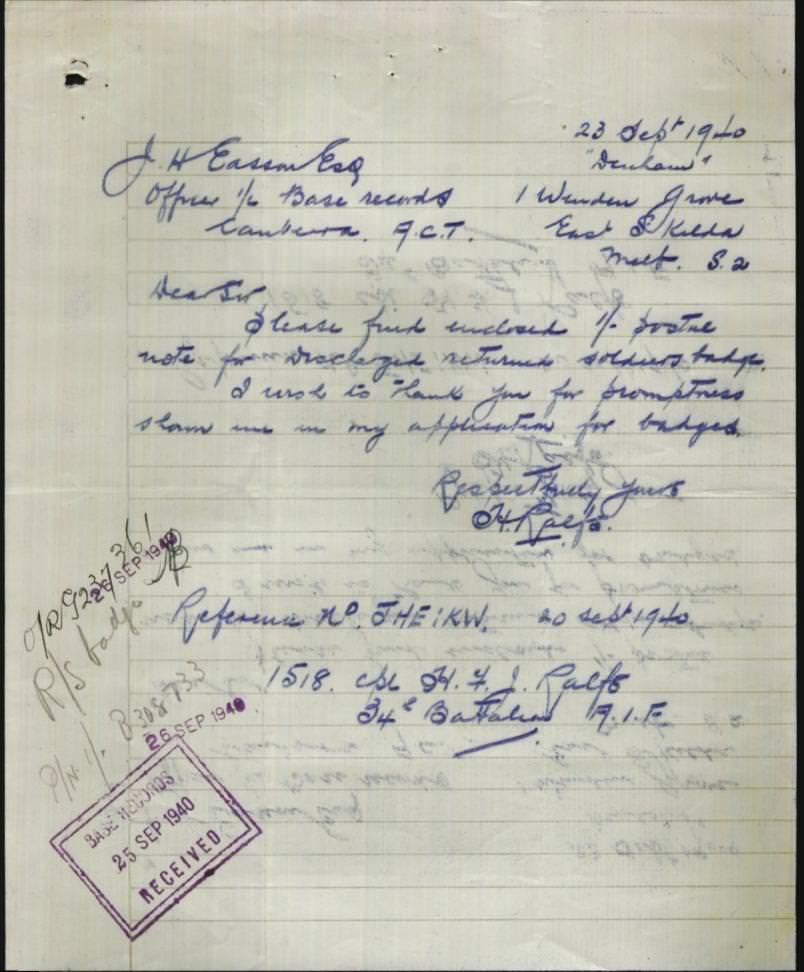 23 Sept 1940
J. H Easson Esq
"Denham"
Officer i/c Base records
1 Wenden Grove
Canberra. A.C.T.
East St Kilda
Melb. S.2
Dear Sir
Please find enclosed 1/- postal
note for Discharged returned soldiers badge.
I wish to thank you for promptness
shown me in my application for badges.
Respectfully Yours
H. Ralfs.
O/R 9237361
26 SEP 1940
R/S badge
P/N 1/- B308733
Reference No. JHE:KW. 20 Sept 1940
1518. Cpl H. F. J. Ralfs
34th Battalion A.I.F.
26 SEP 1940
BASE RECORDS
25 SEP 1940
RECEIVED